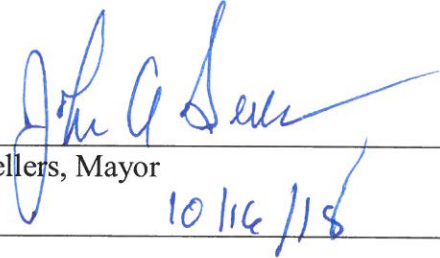 John A Sellers
ellers, Mayor
10/16/18